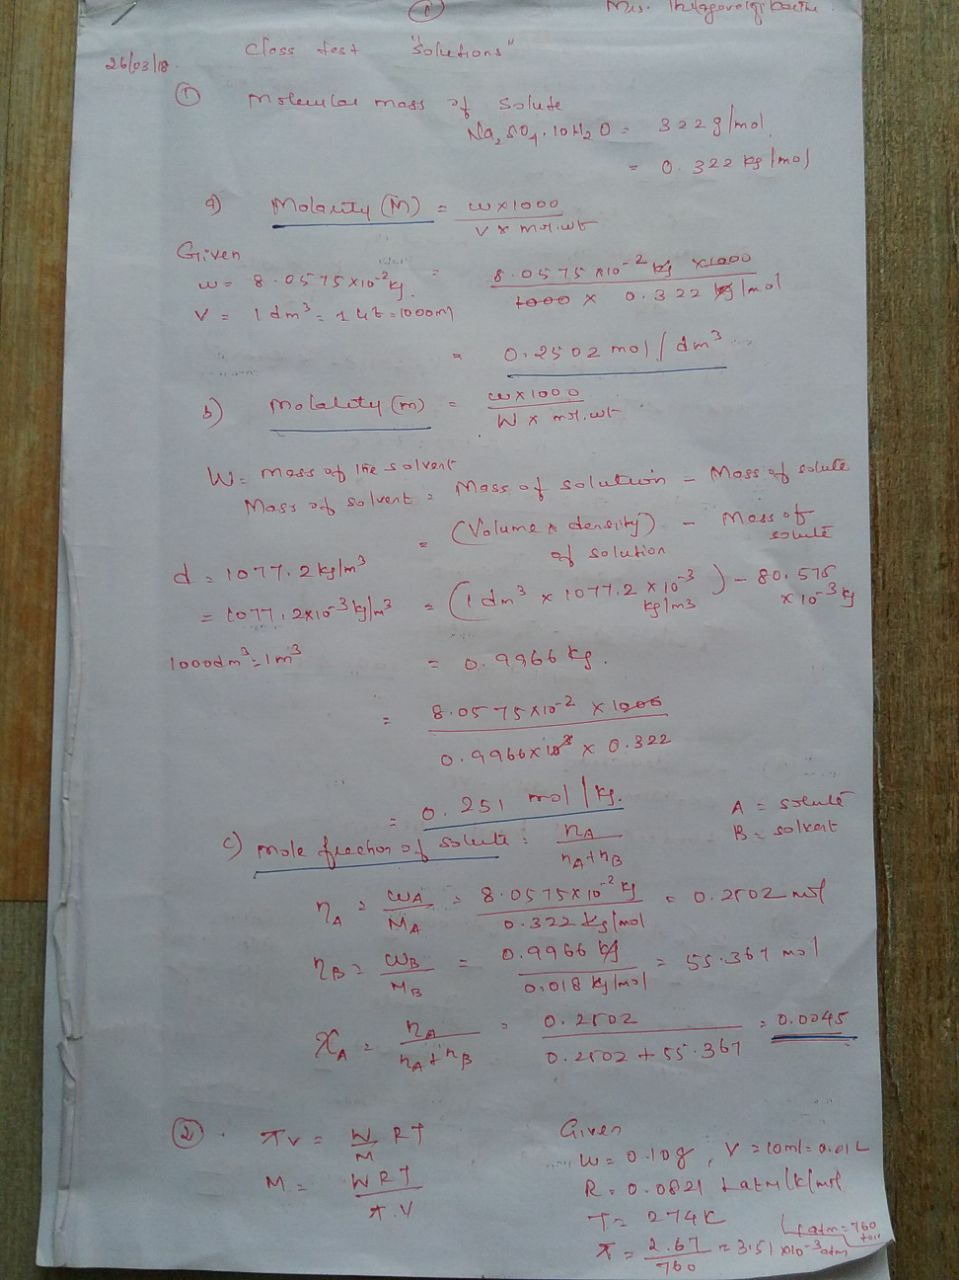 1
Mrs.
26/03/18.
Class test "Solutions"
① Molecular mass of Solute
Na₂SO₄.10H₂O = 322 g/mol
= 0.322 kg/mol
a) Molarity (M) = w×1000 / V × mol.wt
Given
w = 8.0575×10⁻² kg. = 8.0575×10⁻² kg ×1000 / 1000 × 0.322 kg/mol
V = 1dm³ = 1 Lit = 1000ml
= 0.2502 mol/dm³
b) Molality (m) = w×1000 / W × mol.wt
W = Mass of the solvent
Mass of solvent = Mass of solution – Mass of solute
= (Volume × density) of solution – Mass of solute
d = 1077.2 kg/m³
= 1077.2×10⁻³ kg/m³ = (1dm³ × 1077.2 × 10⁻³ kg/m3) – 80.575 × 10⁻³ kg
1000dm³ = 1m³ = 0.9966 kg.
= 8.0575×10⁻² × 1000 / 0.9966×10³ × 0.322
= 0.251 mol/kg.
A = solute
B = solvent
c) Mole fraction of solute = nA / nA+nB
nA = wA / MA = 8.0575×10⁻² kg / 0.322 kg/mol = 0.2502 mol
nB = wB / MB = 0.9966 kg / 0.018 kg/mol = 55.367 mol
xA = nA / nA+nB = 0.2502 / 0.2502 + 55.367 = 0.0045
② πV = W/M RT
M = WRT / π.V
Given
W = 0.10g, V = 10ml = 0.01L
R = 0.0821 Latm/k/mol
T = 274K
1 atm = 760 torr
π = 2.67/760 = 3.51 ×10⁻³ atm